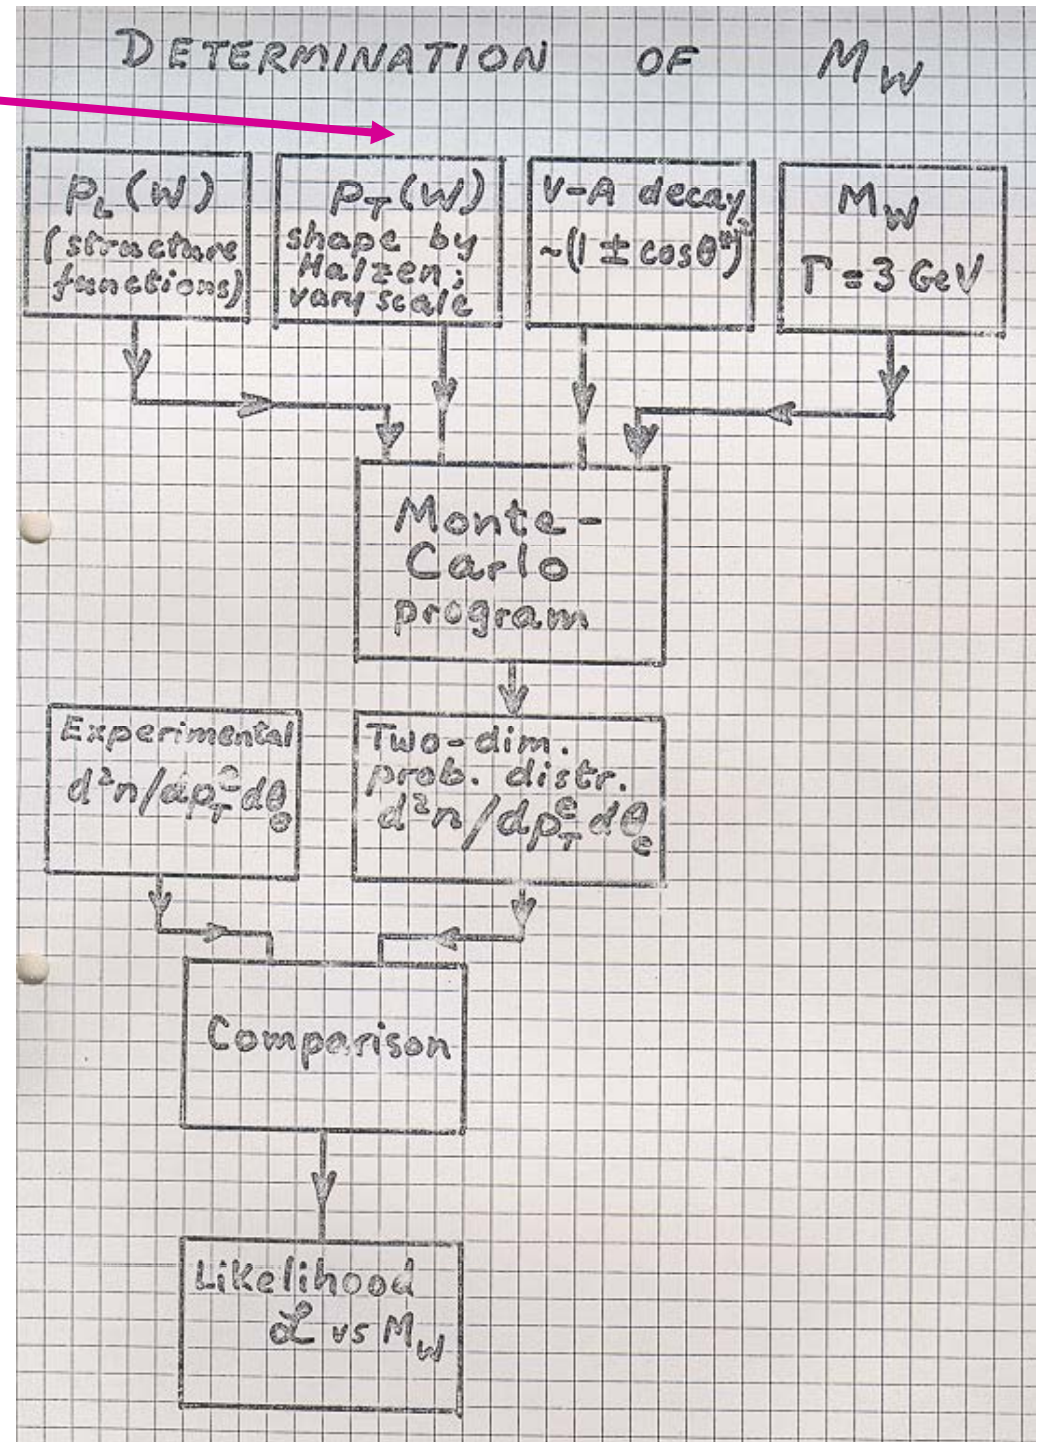 DETERMINATION OF M_W
p_L(W)
(structure
functions)
p_T(W)
shape by
Halzen;
vary scale
V-A decay
~(1 ± cosθ*)²
M_W
Γ = 3 GeV
Monte-
Carlo
program
Experimental
d²n/dp_T^e dθ_e
Two-dim.
prob. distr.
d²n/dp_T^e dθ_e
Comparison
Likelihood
ℒ vs M_W